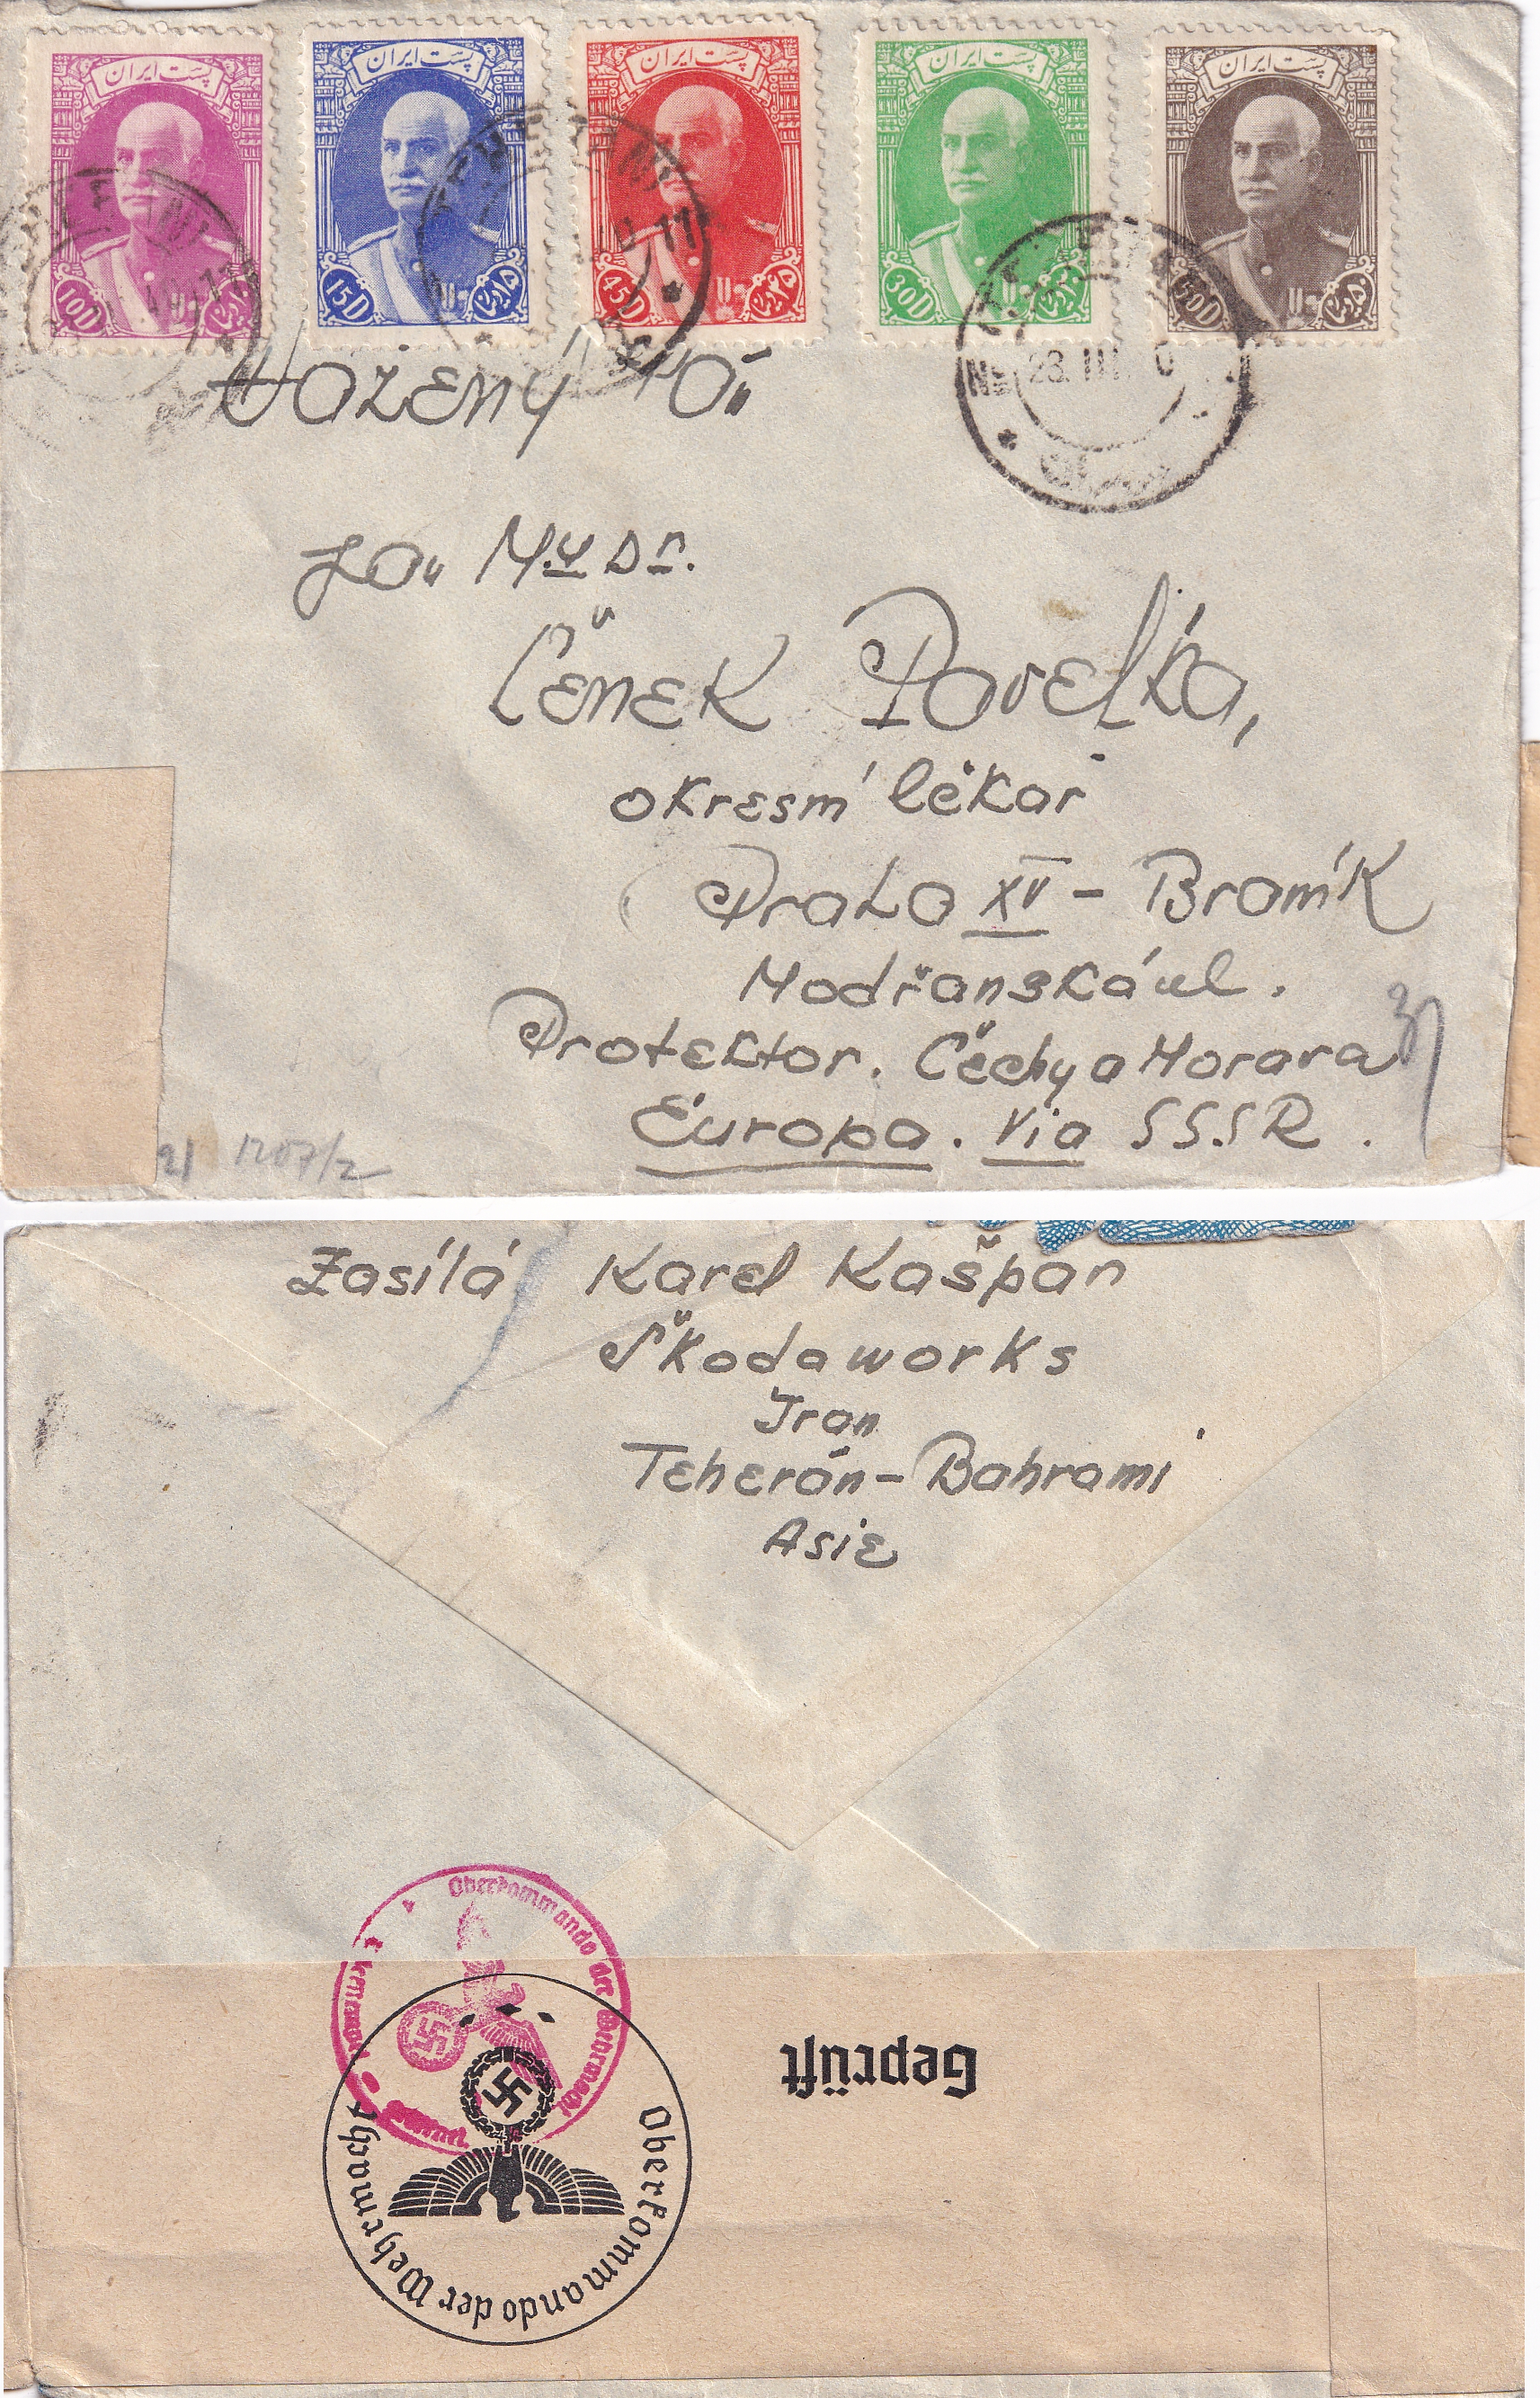 پست ایران
پست ایران
پست ایران
پست ایران
پست ایران
10D
15D
45D
30D
50D
TEHERAN
23. III
Vážený pán
pan Mudr.
Čeněk Pavelka,
okresní lékař
Praha XV - Braník
Modřanská ul.
Protektor. Čechy a Morava
Europa. Via SSSR.
21 1207/2
Zasílá Karel Kašpar
Škodaworks
Iran
Teherán - Bahrami
Asie
Oberkommando der Wehrmacht
Geprüft
Oberkommando der Wehrmacht